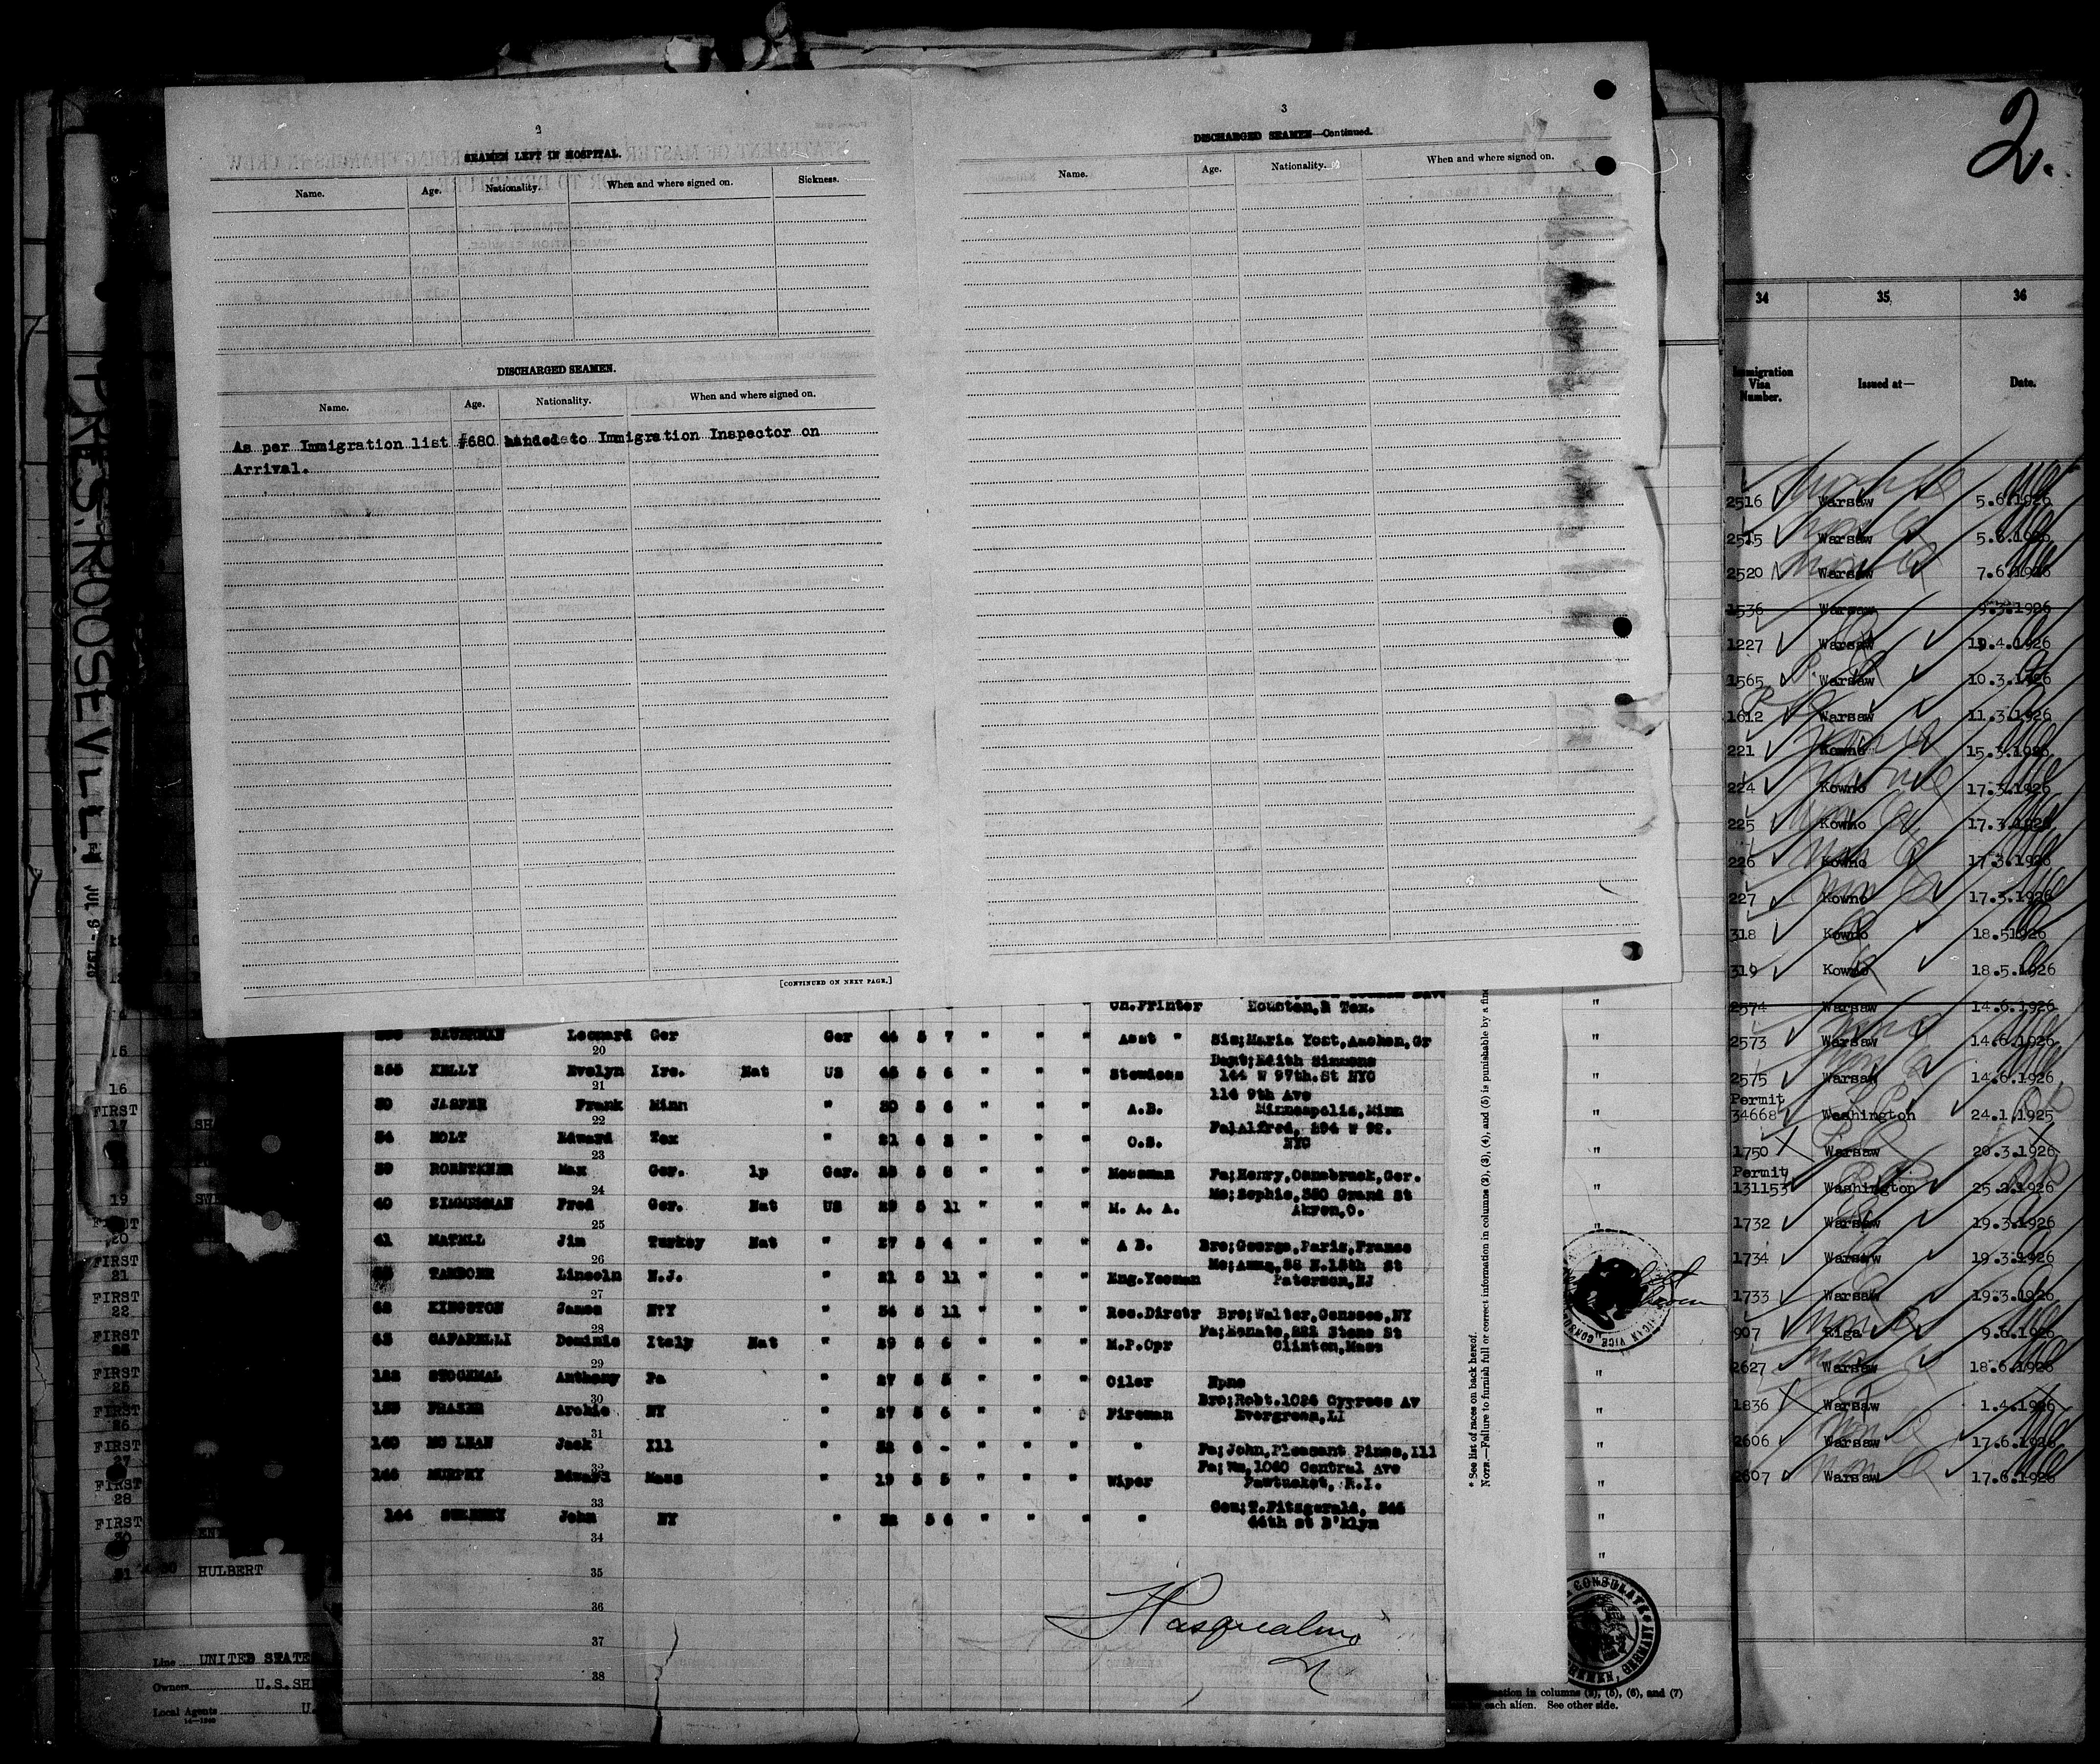 2
SEAMEN LEFT IN HOSPITAL.
Name. Age. Nationality. When and where signed on. Sickness.
DISCHARGED SEAMEN.
Name. Age. Nationality. When and where signed on.
As per Immigration list #680 handed to Immigration Inspector on
Arrival.
[CONTINUED ON NEXT PAGE.]
3
DISCHARGED SEAMEN—Continued.
Name. Age. Nationality. When and where signed on.
PRES. ROOSEVELT
JUL 9 - 1926
Ch.Printer Houston, Tex.
Leonard Ger Ger 44 5 7 " " " Asst " Sis;Maria Yost,Aachen,Gr
20
Daut;Edith Simmons
255 KELLY Evelyn Ire. Nat US 45 5 6 " " " Stewdess 144 W 97th.St NYC
21
114 9th Ave
30 JASPER Frank Minn " 30 5 6 " " " A.B. Minneapolis,Minn
22
Fa;Alfred, 294 W 92.
34 HOLT Edward Tex " 21 6 2 " " " O.S. NYC
23
39 Max Ger. lp Ger. 25 5 8 " " " Messman Fa;Henry,Osnabruck,Ger.
24
Mo;Sophie,380 Grand St
40 ZIMMERMAN Fred Ger. Nat US 29 5 11 " " " M. A. A. Akron,O.
25
41 MATELL Jim Turkey Nat " 27 5 4 " " " A B. Bro;George,Paris,France
26
Mo;Anna,88 N.15th St
Lincoln N.J. " 21 5 11 " " " Eng.Yeoman Paterson,NJ
27
62 KINGSTON James NTY " 34 5 11 " " " Rec.Dirctr Bro;Walter,Genesee,NY
28
Fa;Donato,222 Stone St
63 CAFARELLI Dominic Italy Nat " 29 5 6 " " " M.P.Opr Clinton,Mass
29
122 Anthony Pa " 27 5 5 " " " Oiler None
30
Bro;Robt.1026 Cypress Av
FRASER Archie NY " 27 5 6 " " Fireman Evergreen,LI
31
140 MC LEAN Jack Ill " 32 6 - " " " " Fa;John,Pleasant Pines,Ill
32
Fa;Wm,1060 Central Ave
MURPHY Edward Mass " 19 5 5 " " " Wiper Pawtucket, R.I.
33
Cou;T.Fitzgerald, 546
144 SWEENEY John NY " 32 5 6 " " " " 44th st B'klyn
34
35
36
37
38
Pasqualini
* See list of races on back hereof.
NOTE.—Failure to furnish full or correct information in columns (2), (3), (4), and (5) is punishable by a fine
15
16
FIRST
17 SH
19 SWE
FIRST
20
FIRST
21
FIRST
22
FIRST
FIRST
25
FIRST
26
FIRST
27
FIRST
28
FIRST
30
31 HULBERT
Line UNITED STATE
Owners U.S.SH
Local Agents U.
CONSULATE
BREMEN, GERMANY
information in columns (2), (5), (6), and (7)
each alien. See other side.
2.
34 35 36
Immigration Visa Number. Issued at— Date.
2516 Warsaw 5.6.1926
2515 Warsaw 5.6.1926
2520 Warsaw 7.6.1926
1536 Warsaw 9.3.1926
1227 Warsaw 19.4.1926
1565 Warsaw 10.3.1926
1612 Warsaw 11.3.1926
221 Kowno 15.3.1926
224 Kowno 17.3.1926
225 Kowno 17.3.1926
226 Kowno 17.3.1926
227 Kowno 17.3.1926
318 Kowno 18.51926
319 Kowno 18.5.1926
2574 Warsaw 14.6.1926
2573 Warsaw 14.6.1926
2575 Warsaw 14.6.1926
Permit
34668 Washington 24.1.1925
1750 Warsaw 20.3.1926
Permit
131153 Washington 25.2.1926
1732 Warsaw 19.3.1926
1734 Warsaw 19.3.1926
1733 Warsaw 19.3.1926
907 Riga 9.6.1926
2627 Warsaw 18.6.1926
1836 Warsaw 1.4.1926
2606 Warsaw 17.6.1926
2607 Warsaw 17.6.1926